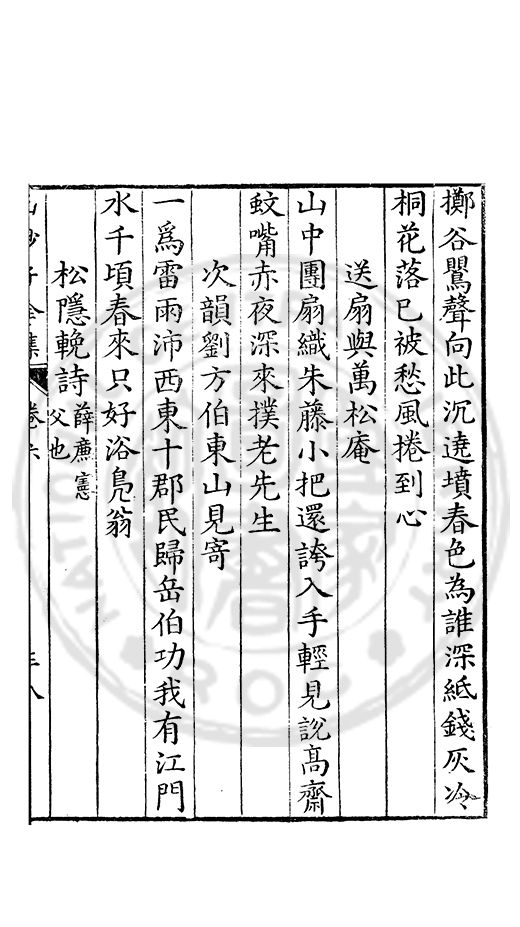 擲谷鸎聲向此沉遶墳春色為誰深紙錢灰冷
桐花落已被愁風捲到心
送扇與萬松庵
山中團扇織朱藤小把還誇入手輕見說髙齋
蚊嘴赤夜深來撲老先生
次韻劉方伯東山見寄
一爲雷雨沛西東十郡民歸岳伯功我有江門
水千頃春來只好浴鳧翁
松隱輓詩薛㢘憲父也
子全集 卷六